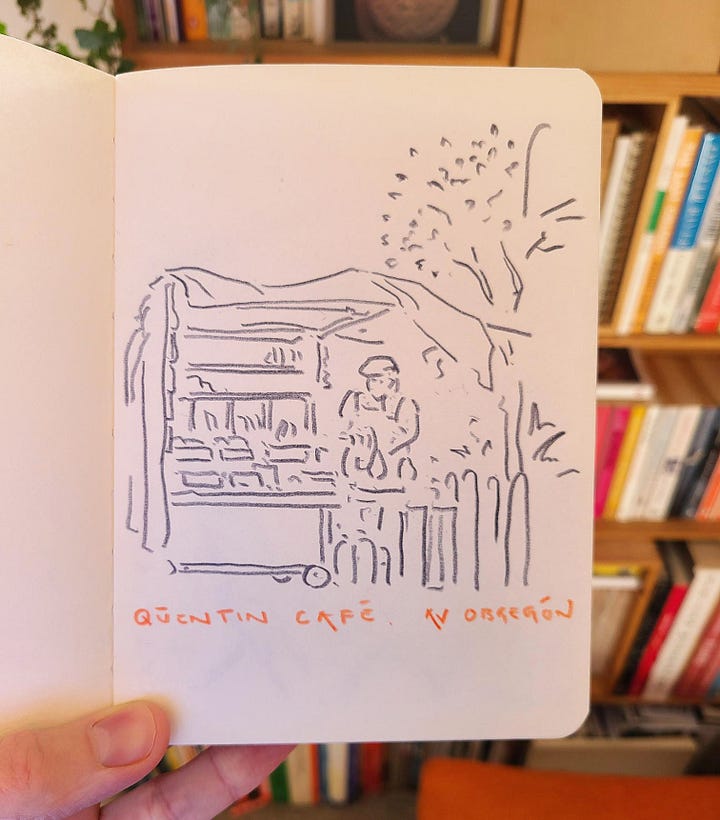 QŪENTIN CAFÉ. AV OBREGÓN